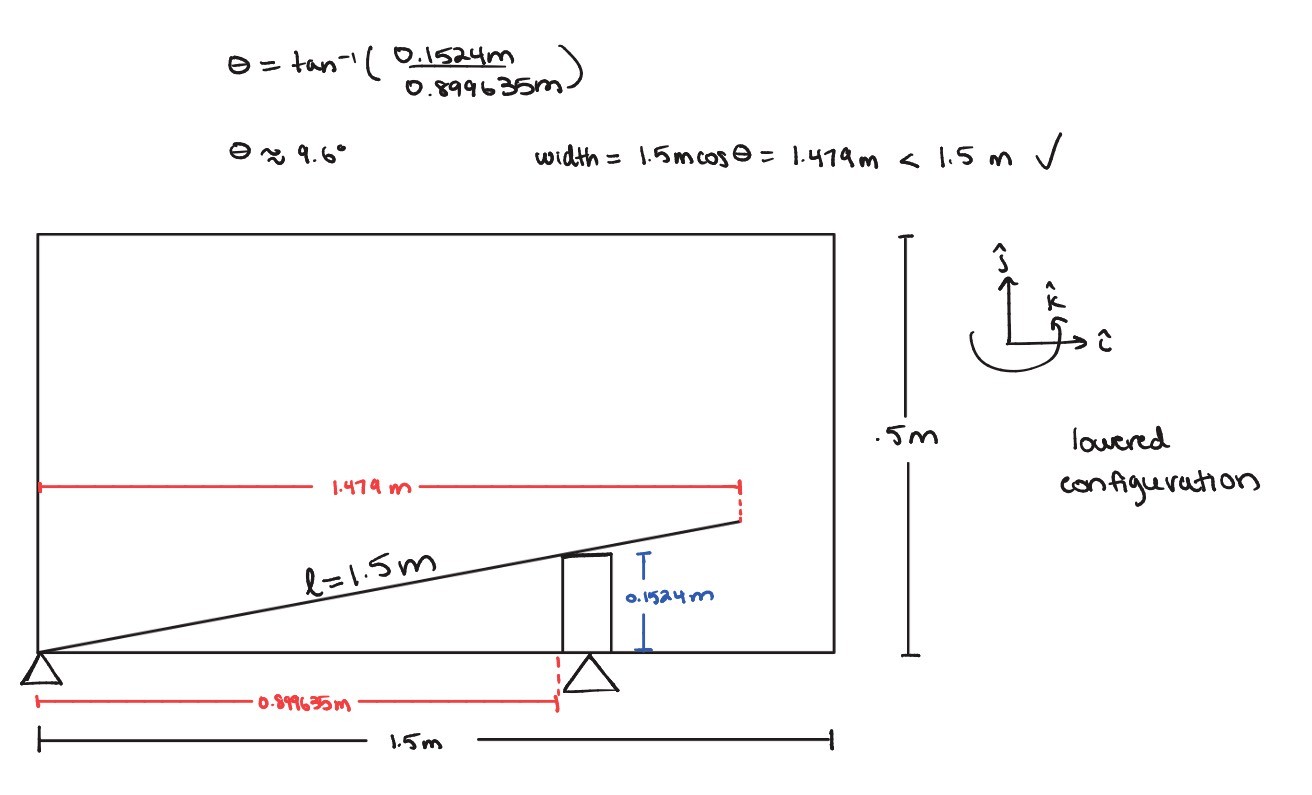 θ = tan⁻¹ ( 0.1524m / 0.899635m )
θ ≈ 9.6°
width = 1.5mcosθ = 1.479m < 1.5 m ✓
ĵ
k̂
î
.5m
lowered
configuration
1.479 m
l=1.5m
0.1524m
0.899635m
1.5m